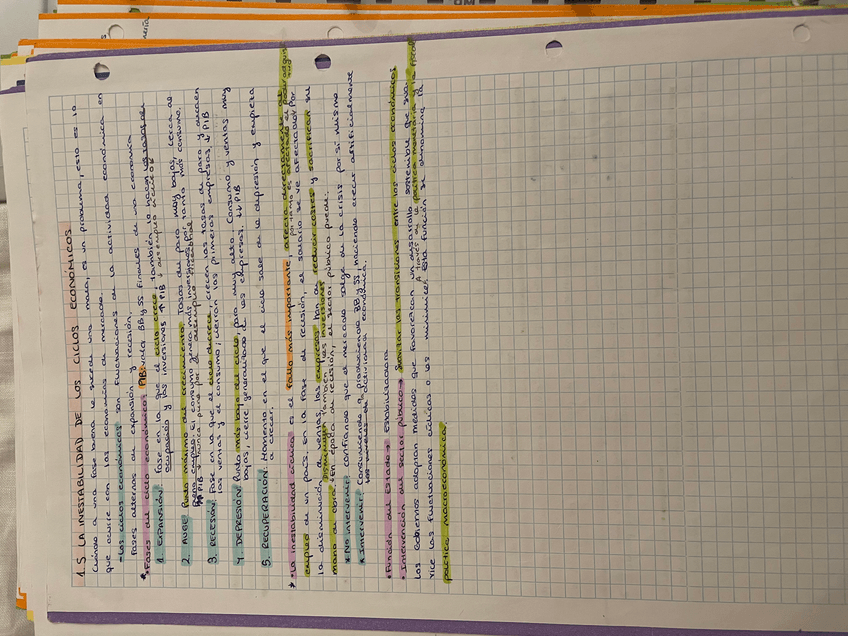 1.5 LA INESTABILIDAD DE LOS CICLOS ECONÓMICOS.
Cuando a una fase buena le sucede una mala, es un problema, esto es lo
que ocurre con las economías de mercado.
- Los ciclos económicos son fluctuaciones de la actividad económica en
fases alternas de expansión y recesión.
* Fases del ciclo económico: PIB: valora BB y SS finales de una economía
1. EXPANSIÓN: Fase en la que el ciclo crece también lo hacen las tasas de
ocupación y las inversiones ↑ PIB
2. AUGE: Punto máximo de crecimiento. Tasas de paro muy bajas, cerca de
pleno empleo. El consumo genera más inversiones, por tanto más consumo.
PIB nunca puro por el desempleo friccional
3. RECESIÓN: Fase en la que el ciclo decrece, crecen las tasas de paro y decaen
las ventas y el consumo; cierran las primeras empresas, ↓ PIB
4. DEPRESIÓN: Punto más bajo del ciclo, paro muy alto. Consumo y ventas muy
bajas, cierre generalizado de las empresas. ↓↓ PIB
5. RECUPERACIÓN: Momento en el que el ciclo sale de la depresión y empieza
a crecer.
* - La inestabilidad cíclica es el fallo más importante, afecta directamente al
empleo de un país, en la fase de recesión, el salario se ve afectado por
por tanto es afectado el poder adquis
la disminución de ventas, las empresas han de reducir costes y sacrificar su
mano de obra. Disminuyen también las inversiones
En época de recesión, el sector público puede:
* No intervenir: confiando que el mercado salga de la crisis por sí mismo
* Intervenir: Consumiendo y produciendo BB y SS, haciendo crecer artificialmente
los niveles de actividad económica.
• Función del Estado → Estabilizadora
• Intervención del sector público → Suavizar las transiciones entre los ciclos económicos.
Los gobiernos adoptan medidas que favorezcan un desarrollo sostenible que suavice
A través de la política monetaria y la fiscal
las fluctuaciones cíclicas o las minimice. Esta función se denomina la
política macroeconómica.